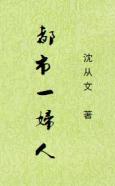 都市一婦人
沈从文 著